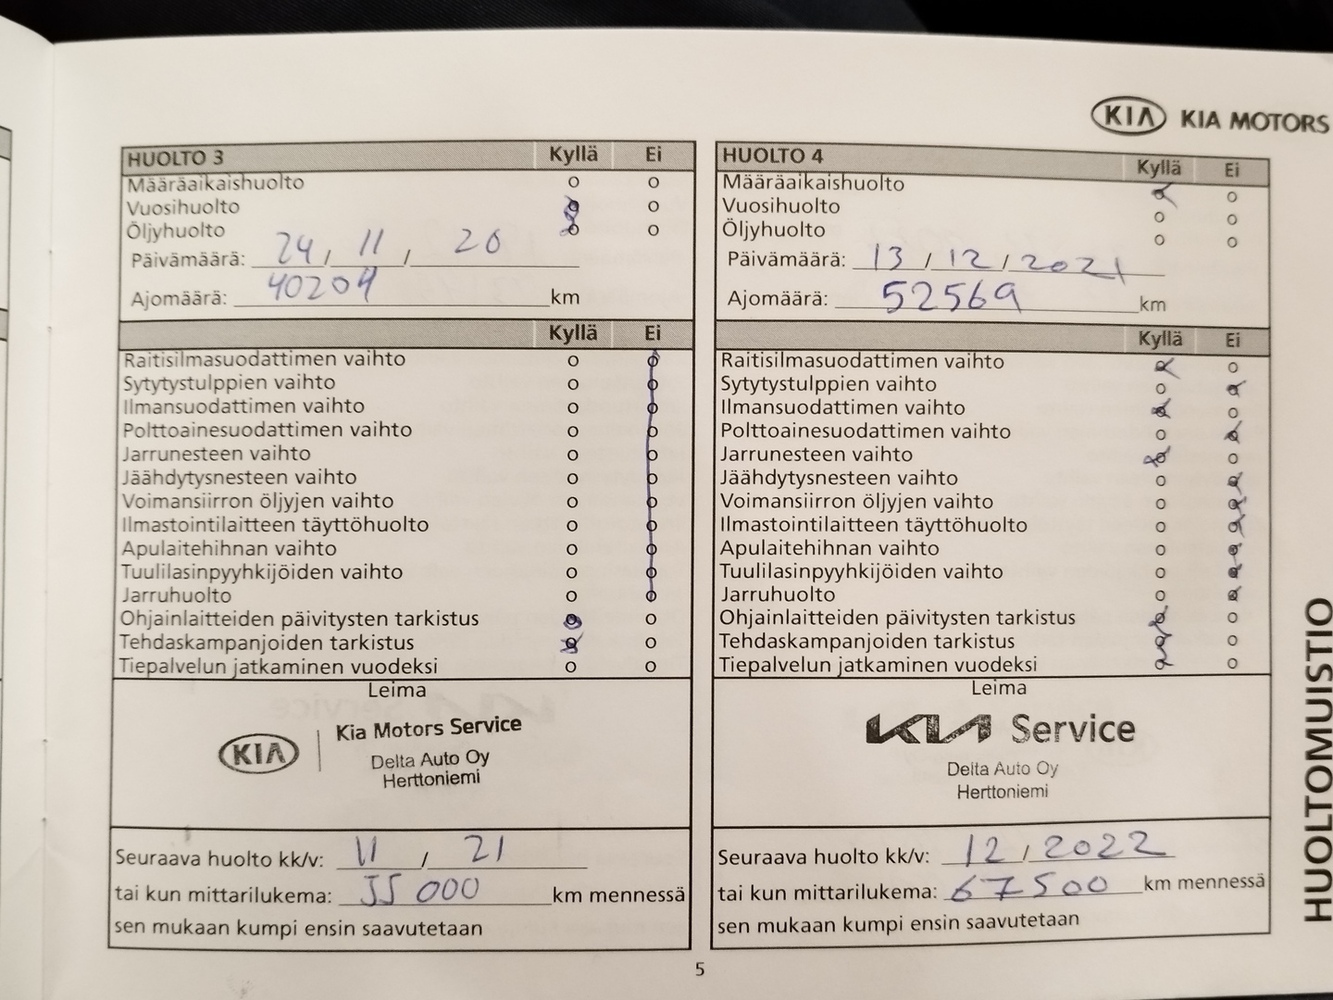 KIA KIA MOTORS
HUOLTO 3 Kyllä Ei
Määräaikaishuolto
Vuosihuolto
Öljyhuolto
Päivämäärä: 24 / 11 / 20
Ajomäärä: 40204 km
Kyllä Ei
Raitisilmasuodattimen vaihto
Sytytystulppien vaihto
Ilmansuodattimen vaihto
Polttoainesuodattimen vaihto
Jarrunesteen vaihto
Jäähdytysnesteen vaihto
Voimansiirron öljyjen vaihto
Ilmastointilaitteen täyttöhuolto
Apulaitehihnan vaihto
Tuulilasinpyyhkijöiden vaihto
Jarruhuolto
Ohjainlaitteiden päivitysten tarkistus
Tehdaskampanjoiden tarkistus
Tiepalvelun jatkaminen vuodeksi
Leima
KIA Kia Motors Service
Delta Auto Oy
Herttoniemi
Seuraava huolto kk/v: 11 / 21
tai kun mittarilukema: 55 000 km mennessä
sen mukaan kumpi ensin saavutetaan
HUOLTO 4 Kyllä Ei
Määräaikaishuolto
Vuosihuolto
Öljyhuolto
Päivämäärä: 13 / 12 / 2021
Ajomäärä: 52569 km
Kyllä Ei
Raitisilmasuodattimen vaihto
Sytytystulppien vaihto
Ilmansuodattimen vaihto
Polttoainesuodattimen vaihto
Jarrunesteen vaihto
Jäähdytysnesteen vaihto
Voimansiirron öljyjen vaihto
Ilmastointilaitteen täyttöhuolto
Apulaitehihnan vaihto
Tuulilasinpyyhkijöiden vaihto
Jarruhuolto
Ohjainlaitteiden päivitysten tarkistus
Tehdaskampanjoiden tarkistus
Tiepalvelun jatkaminen vuodeksi
Leima
KIA Service
Delta Auto Oy
Herttoniemi
Seuraava huolto kk/v: 12 / 2022
tai kun mittarilukema: 67500 km mennessä
sen mukaan kumpi ensin saavutetaan
HUOLTOMUISTIO
5